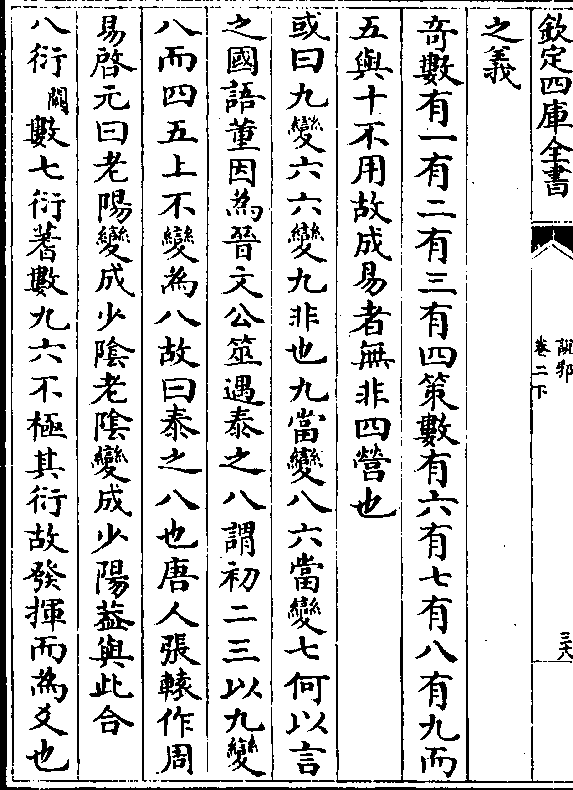 欽定四庫全書
說郛
卷二下
三六
之義
奇數有一有二有三有四策數有六有七有八有九而
五與十不用故成易者無非四營也
或曰九變六六變九非也九當變八六當變七何以言
之國語董因為晉文公筮遇泰之八謂初二三以九變
八而四五上不變為八故曰泰之八也唐人張轅作周
易啓元曰老陽變成少陰老陰變成少陽葢與此合
八衍闕數七衍蓍數九六不極其衍故發揮而為爻也